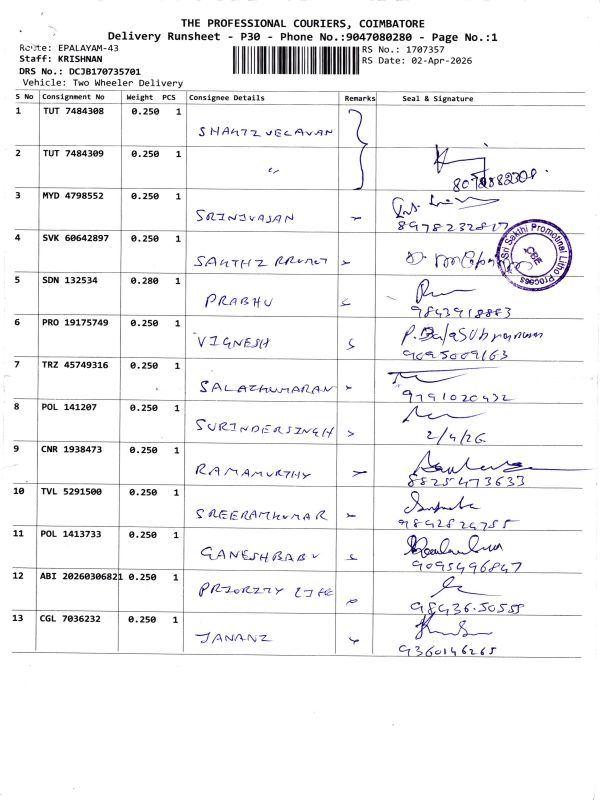 THE PROFESSIONAL COURIERS, COIMBATORE
Delivery Runsheet - P30 - Phone No.:9047080280 - Page No.:1
Route: EPALAYAM-43
RS No.: 1707357
Staff: KRISHNAN
RS Date: 02-Apr-2026
DRS No.: DCJB170735701
Vehicle: Two Wheeler Delivery
S No Consignment No Weight PCS Consignee Details Remarks Seal & Signature
1 TUT 7484308 0.250 1
2 TUT 7484309 0.250 1 "
3 MYD 4798552 0.250 1 SRINIVASAN
8978232817
4 SVK 60642897 0.250 1
Sri Sakthi Promotinal Litho Process
CBE
5 SDN 132534 0.280 1 PRABHU
9843918883
6 PRO 19175749 0.250 1 VIGNESH P. Balasubramani
9095009163
7 TRZ 45749316 0.250 1
9791020432
8 POL 141207 0.250 1 SURINDERSINGH
2/4/26
9 CNR 1938473 0.250 1 RAMAMURTHY
8825473633
10 TVL 5291500 0.250 1 SREERAMKUMAR
9842824755
11 POL 1413733 0.250 1 GANESHBABU
9095496847
12 ABI 20260306821 0.250 1 PRIORITY LIFE
98436.50555
13 CGL 7036232 0.250 1 JANANI
9360146265